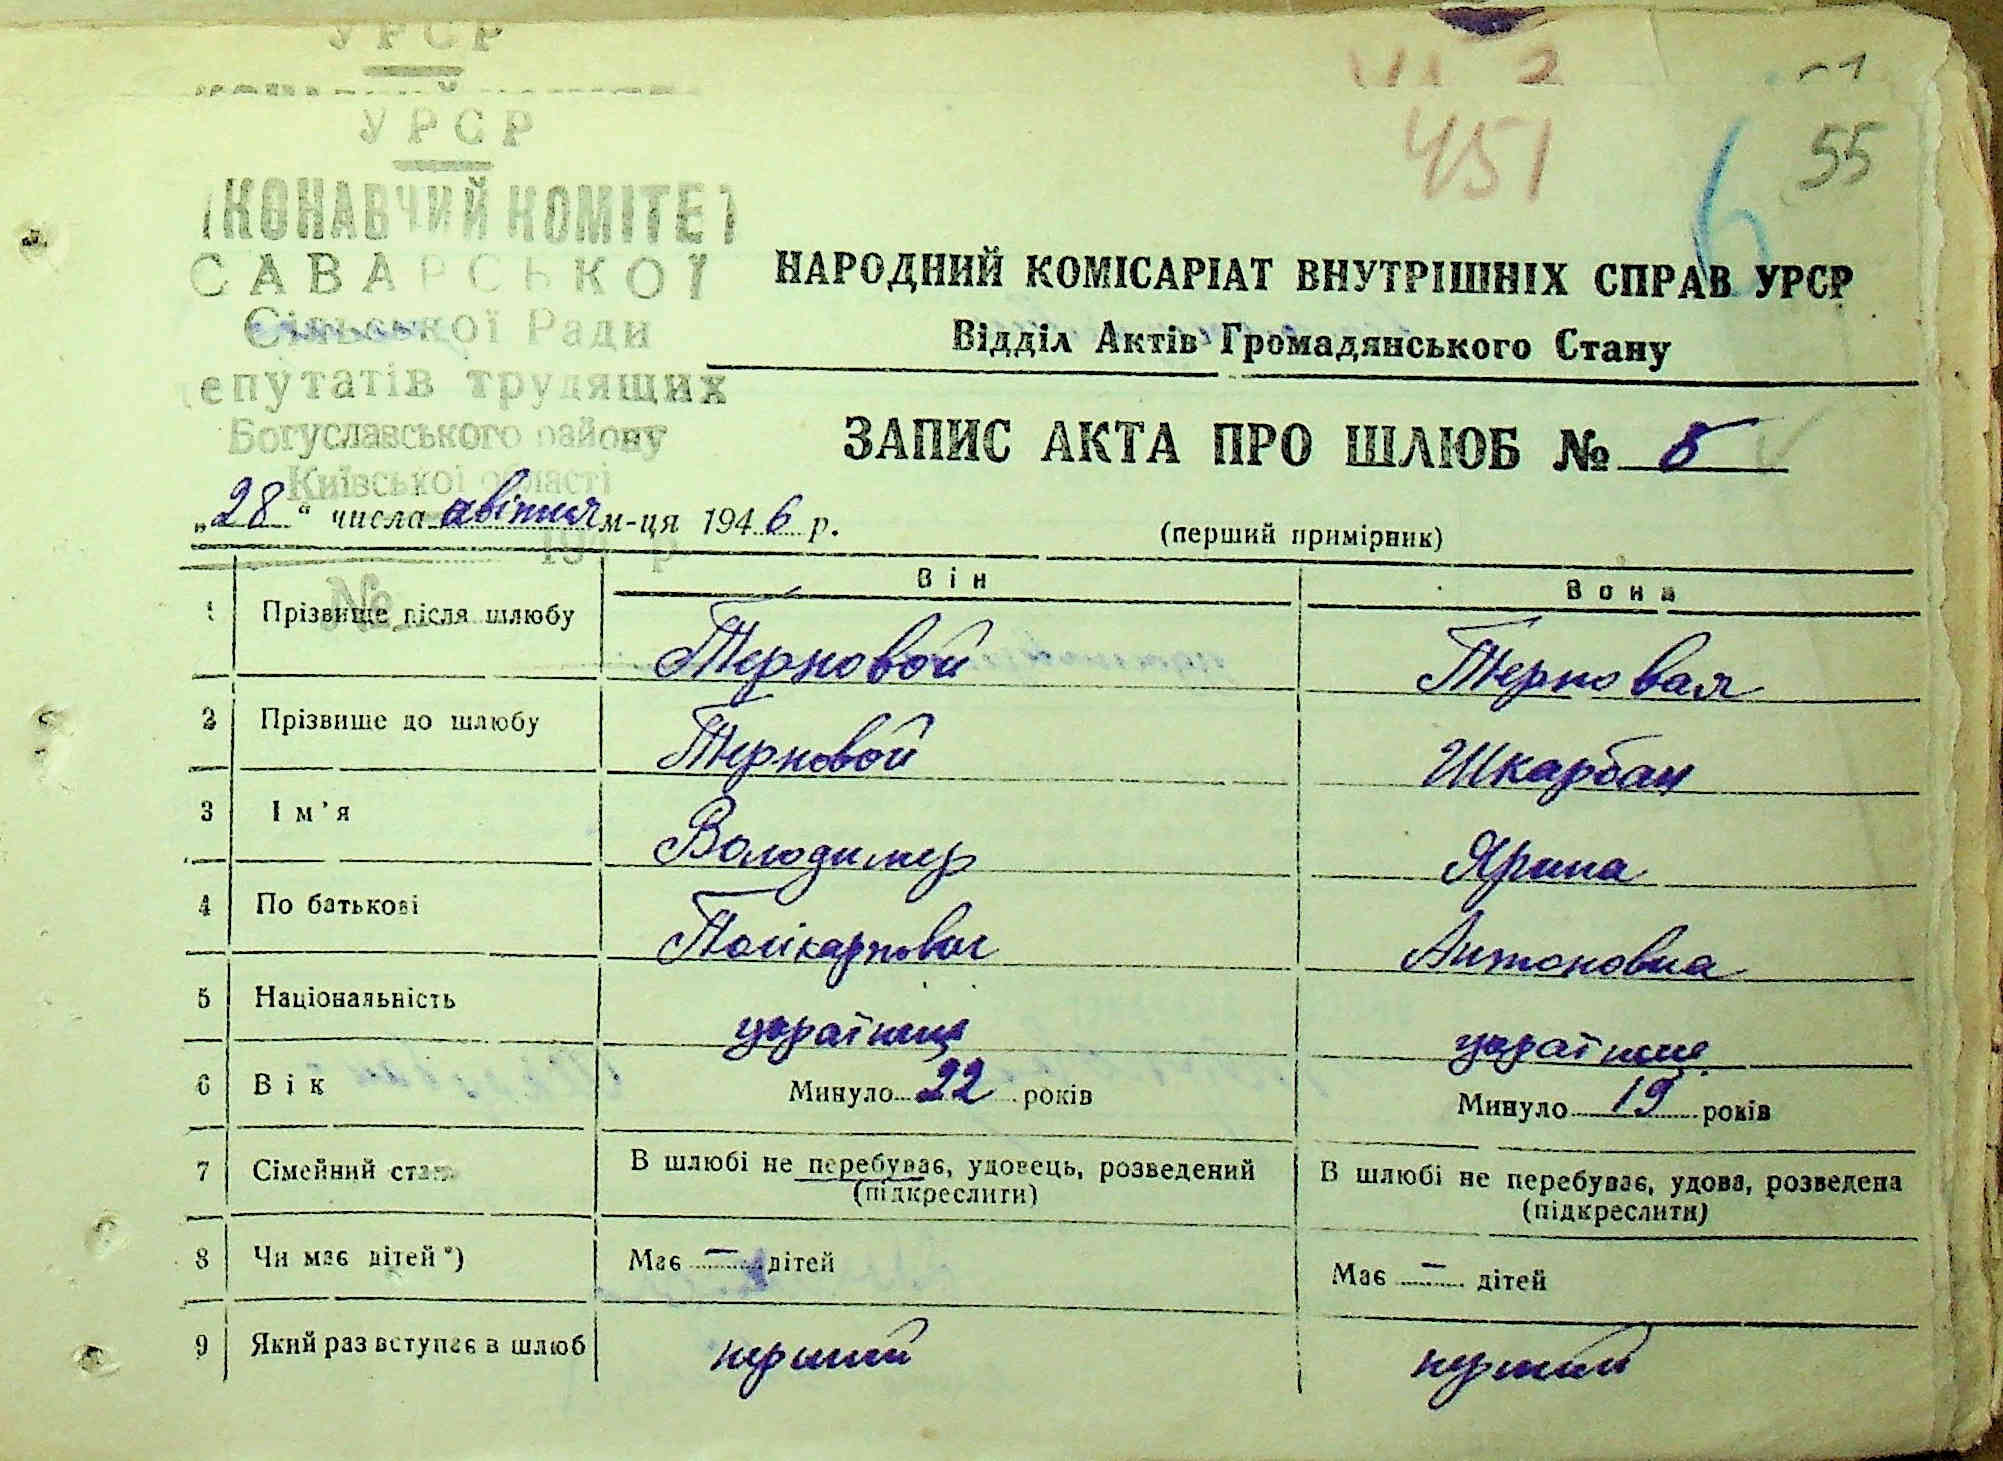 УРСР
УРСР
КОНАВЧИЙ КОМІТЕТ
САВАРСЬКОЇ
Сільської Ради
депутатів трудящих
Богуславського району
Київської області
194 р
№
451
6
55
НАРОДНИЙ КОМІСАРІАТ ВНУТРІШНІХ СПРАВ УРСР
Відділ Актів Громадянського Стану
ЗАПИС АКТА ПРО ШЛЮБ № 5
„28“ числа квітня м-ця 1946 р.
(перший примірник)
Він Вона
1 Прізвище після шлюбу Терновой Терновая
2 Прізвище до шлюбу Терновой Шкарбан
3 Ім'я Володимер Ярина
4 По батькові Полікарпович Антоновна
5 Національність українець українка
6 Вік Минуло 22 років Минуло 19 років
7 Сімейний стан В шлюбі не перебуває, удовець, розведений (підкреслити) В шлюбі не перебуває, удова, розведена (підкреслити)
8 Чи має дітей*) Має — дітей Має — дітей
9 Який раз вступає в шлюб перший перший